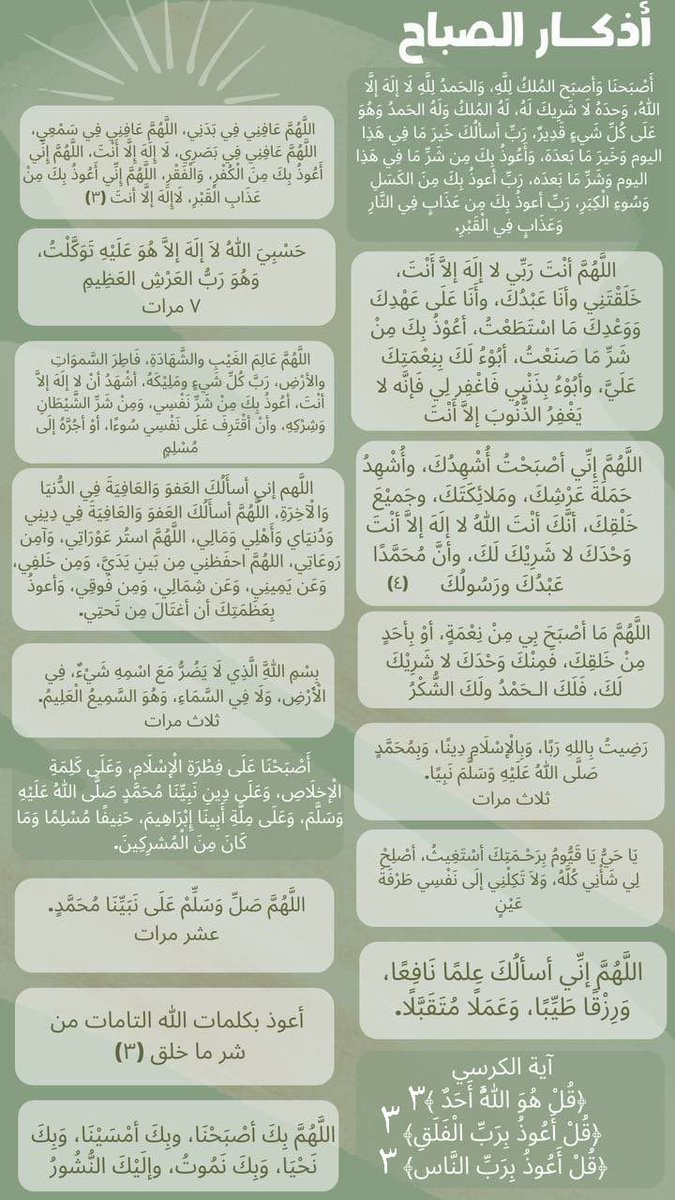 أذكار الصباح
أَصْبَحنَا وَأصبَح المُلكُ لِلَّهِ، وَالحَمدُ لِلَّهِ لَا إلَهَ إلَّا
اللهُ، وَحدَهُ لَا شَرِيكَ لَهُ، لَهُ المُلكُ وَلَهُ الحَمدُ وَهُوَ
عَلَى كُلِّ شَيءٍ قَدِيرٌ، رَبِّ أسأَلُكَ خَيرَ مَا فِي هَذِا
اليوم وَخَيرَ مَا بَعدَهُ، وَأعُوذُ بِكَ مِن شَرِّ مَا فِي هَذِا
اليوم وَشَرِّ مَا بَعدَه، رَبِّ أعوذُ بِكَ مِنَ الكَسَلِ
وَسُوءِ الكِبَرِ، رَبِّ أعوذُ بِكَ مِن عَذَابٍ فِي النَّارِ
وَعَذَابٍ فِي الْقَبْرِ.
اللَّهُمَّ أنْتَ رَبِّي لا إلَهَ إلاَّ أَنْتَ،
خَلَقْتَنِي وأنَا عَبْدُكَ، وأنَا عَلَى عَهْدِكَ
وَوَعْدِكَ مَا اسْتَطَعْتُ، أعُوْذُ بِكَ مِنْ
شَرِّ مَا صَنَعْتُ، أبُوْءُ لَكَ بِنِعْمَتِكَ
عَلَيَّ، وأبُوْءُ بِذَنْبِي فَاغْفِر لِي فَإنَّه لا
يَغْفِرُ الذُّنُوبَ إلاَّ أَنْتَ
اللَّهُمَّ إنِّي أصْبَحْتُ أُشْهِدُكَ، وأُشْهِدُ
حَمَلَةَ عَرْشِكَ، ومَلائِكَتَكَ، وجَميْعَ
خَلْقِكَ، أنَّكَ أنْتَ اللهُ لا إلَهَ إلاَّ أنْتَ
وَحْدَكَ لا شَرِيْكَ لَكَ، وأنَّ مُحَمَّدًا
عَبْدُكَ ورَسُولُكَ (٤)
اللَّهُمَّ مَا أصْبَحَ بِي مِنْ نِعْمَةٍ، أوْ بِأحَدٍ
مِنْ خَلقِكَ، فَمِنْكَ وَحْدَكَ لا شَرِيْكَ
لَكَ، فَلَكَ الـحَمْدُ ولَكَ الشُّكْرُ
رَضِيتُ بِاللهِ رَبًا، وَبِالْإسْلَامِ دِينًا، وَبِمُحَمَّدٍ
صَلَّى اللهُ عَلَيْهِ وَسَلَّمَ نَبِيًا.
ثلاث مرات
يَا حَيُّ يَا قَيُّومُ بِرَحْـمَتِكَ أسْتَغِيثُ، أصْلِحْ
لِي شَأْنِي كُلَّهُ، وَلاَ تَكِلْنِي إلَى نَفْسِي طَرْفَةَ
عَيْنٍ
اللَّهُمَّ إنِّي أسألُكَ عِلمًا نَافِعًا،
وَرِزْقًا طَيِّبًا، وَعَمَلًا مُتَقَبَّلًا.
آية الكرسي
﴿قُلْ هُوَ اللَّهُ أَحَدٌ﴾ ٣
﴿قُلْ أَعُوذُ بِرَبِّ الْفَلَقِ﴾ ٣
﴿قُلْ أَعُوذُ بِرَبِّ النَّاسِ﴾ ٣
اللَّهُمَّ عَافِنِي فِي بَدَنِي، اللَّهُمَّ عَافِنِي فِي سَمْعِي،
اللَّهُمَّ عَافِنِي فِي بَصَرِي، لَا إلَهَ إلَّا أَنْتَ، اللَّهُمَّ إنِّي
أَعُوذُ بِكَ مِنَ الْكُفْرِ، وَالْفَقْرِ، اللَّهُمَّ إنِّي أَعُوذُ بِكَ مِنْ
عَذَابِ القَبْرِ، لَاإِلَهَ إلَّا أنتَ (٣)
حَسْبِيَ اللهُ لاَ إلَهَ إلاَّ هُوَ عَلَيْهِ تَوَكَّلْتُ،
وَهُوَ رَبُّ العَرْشِ العَظِيمِ
٧ مرات
اللَّهُمَّ عَالِمَ الغَيْبِ والشَّهَادَةِ، فَاطِرَ السَّموَاتِ
والأرْضِ، رَبَّ كُلِّ شَيءٍ ومَلِيْكَهُ، أشْهَدُ أنْ لا إلَهَ إلاَّ
أنْتَ، أعُوذُ بِكَ مِنْ شَرِّ نَفْسِي، ومِنْ شَرِّ الشَّيْطَانِ
وَشِرْكِهِ، وأنْ أقْتَرِفَ عَلَى نَفْسِي سُوءًا، أوْ أجُرَّهُ إلَى
مُسْلِمٍ
اللَّهم إني أسأَلُكَ العَفوَ وَالعَافِيَةَ فِي الدُّنيَا
وَالْآخِرَةِ، اللَّهُمَّ أسأَلُكَ العَفوَ وَالعَافِيَةَ فِي دِينِي
وَدُنيَاي وَأهْلِي وَمَالِي، اللَّهُمَّ استُر عَوْرَاتِي، وَآمِن
رَوعَاتِي، اللهُمَّ احفَظنِي مِن بَينِ يَدَيَّ، وَمِن خَلفِي،
وَعَن يَمِينِي، وَعَن شِمَالِي، وَمِن فَوقِي، وَأعوذُ
بِعَظَمَتِكَ أن أغتَالَ مِن تَحتِي.
بِسْمِ اللهَِّ الَّذِي لَا يَضُرُّ مَعَ اسْمِهِ شَيْءٌ، فِي
الْأَرْضِ، وَلَا فِي السَّمَاءِ، وَهُوَ السَّمِيعُ الْعَلِيمُ.
ثلاث مرات
أَصْبَحْنَا عَلَى فِطْرَةِ الْإسْلَامِ، وَعَلَى كَلِمَةِ
الْإخلَاصِ، وَعَلَى دِينِ نَبِيِّنَا مُحَمَّدٍ صَلَّى اللهُ عَلَيْهِ
وَسَلَّمَ، وَعَلَى مِلَّةِ أبِينَا إبْرَاهِيمَ، حَنِيفًا مُسْلِمًا وَمَا
كَانَ مِنَ الْمُشرِكِينَ.
اللَّهُمَّ صَلِّ وَسَلِّمْ عَلَى نَبَيِّنَا مُحَمَّدٍ.
عشر مرات
أعوذ بكلمات الله التامات من
شر ما خلق (٣)
اللَّهُمَّ بِكَ أصْبَحْنَا، وبِكَ أمْسَيْنَا، وَبِكَ
نَحْيَا، وَبِكَ نَمُوتُ، وإلَيْكَ النُّشُورُ